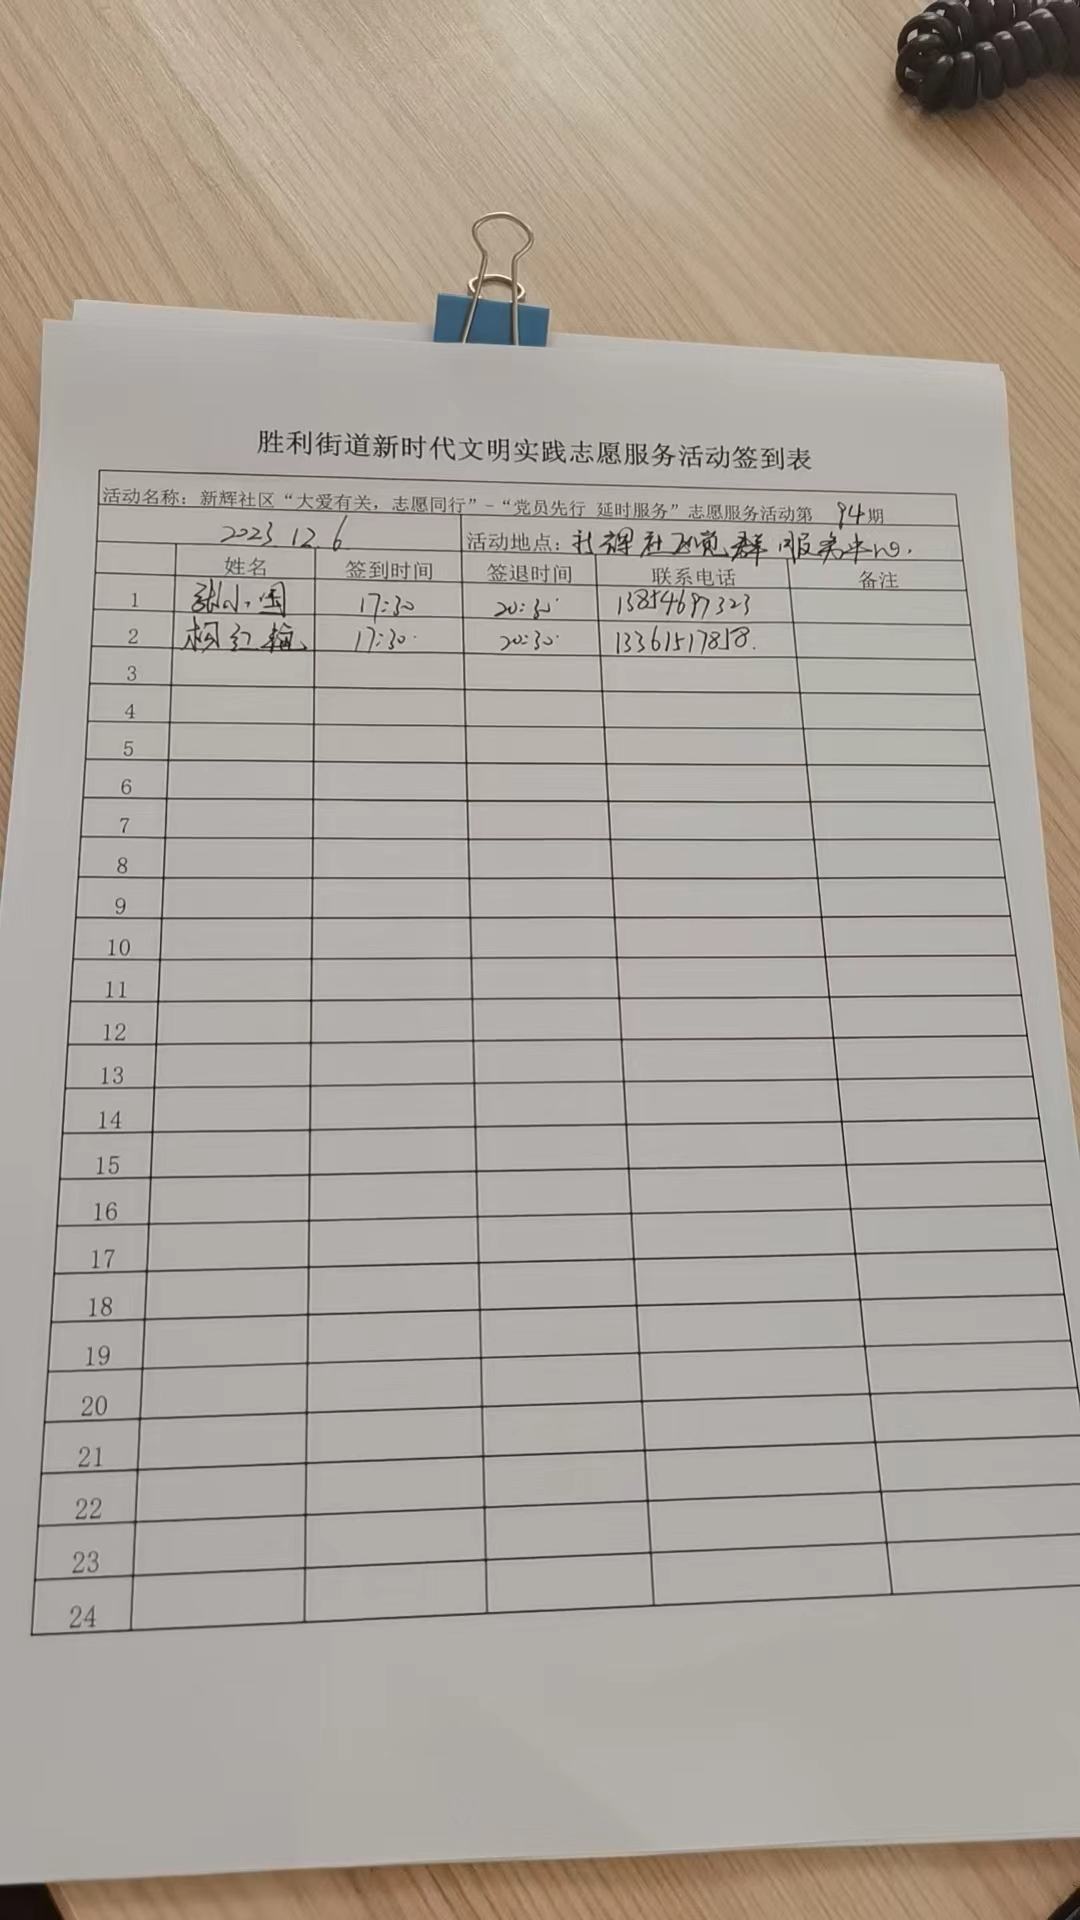 胜利街道新时代文明实践志愿服务活动签到表
活动名称：新辉社区“大爱有关，志愿同行”-“党员先行 延时服务”志愿服务活动第 94期
2023.12.6 活动地点：辉社区党群服务中心.
姓名 签到时间 签退时间 联系电话 备注
1 张小 17:30 20:30 13854697323
2 杨红梅 17:30 20:30 13361517858.
3
4
5
6
7
8
9
10
11
12
13
14
15
16
17
18
19
20
21
22
23
24